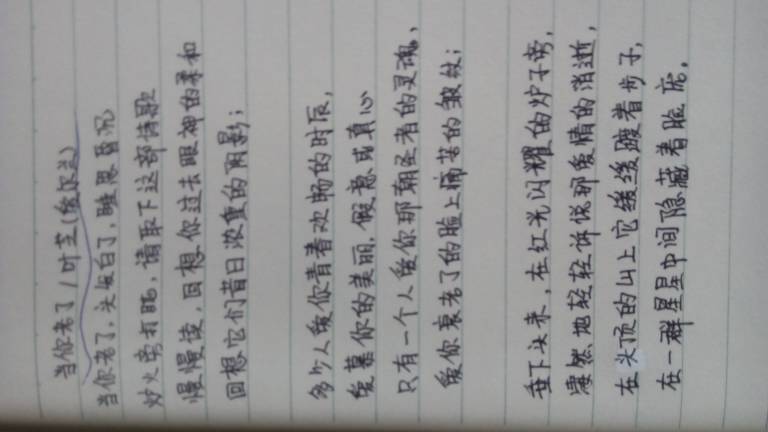 当你老了/叶芝(爱尔兰)
当你老了,头发白了,睡思昏沉
炉火旁打盹,请取下这部诗歌
慢慢读,回想你过去眼神的柔和
回想它们昔日浓重的阴影;
多少人爱你青春欢畅的时辰,
爱慕你的美丽,假意或真心
只有一个人爱你那朝圣者的灵魂、
爱你衰老了的脸上痛苦的皱纹;
垂下头来,在红光闪耀的炉子旁,
凄然地轻轻诉说那爱情的消逝,
在头顶的山上它缓缓踱着步子,
在一群星星中间隐藏着脸庞。